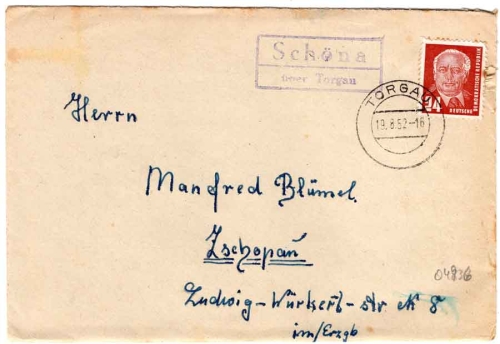 Schöna
über Torgau
TORGAU
19.8.52-16
24
DEUTSCHE
DEMOKRATISCHE REPUBLIK
Herrn
Manfred Blümel.
Zschopau
Ludwig-Würkert-str № 8
im/Erzgb
04836